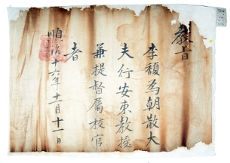 教旨
李馥爲朝散大
夫行安東教授
兼提督屬校官
者
順治十六年十二月十一日